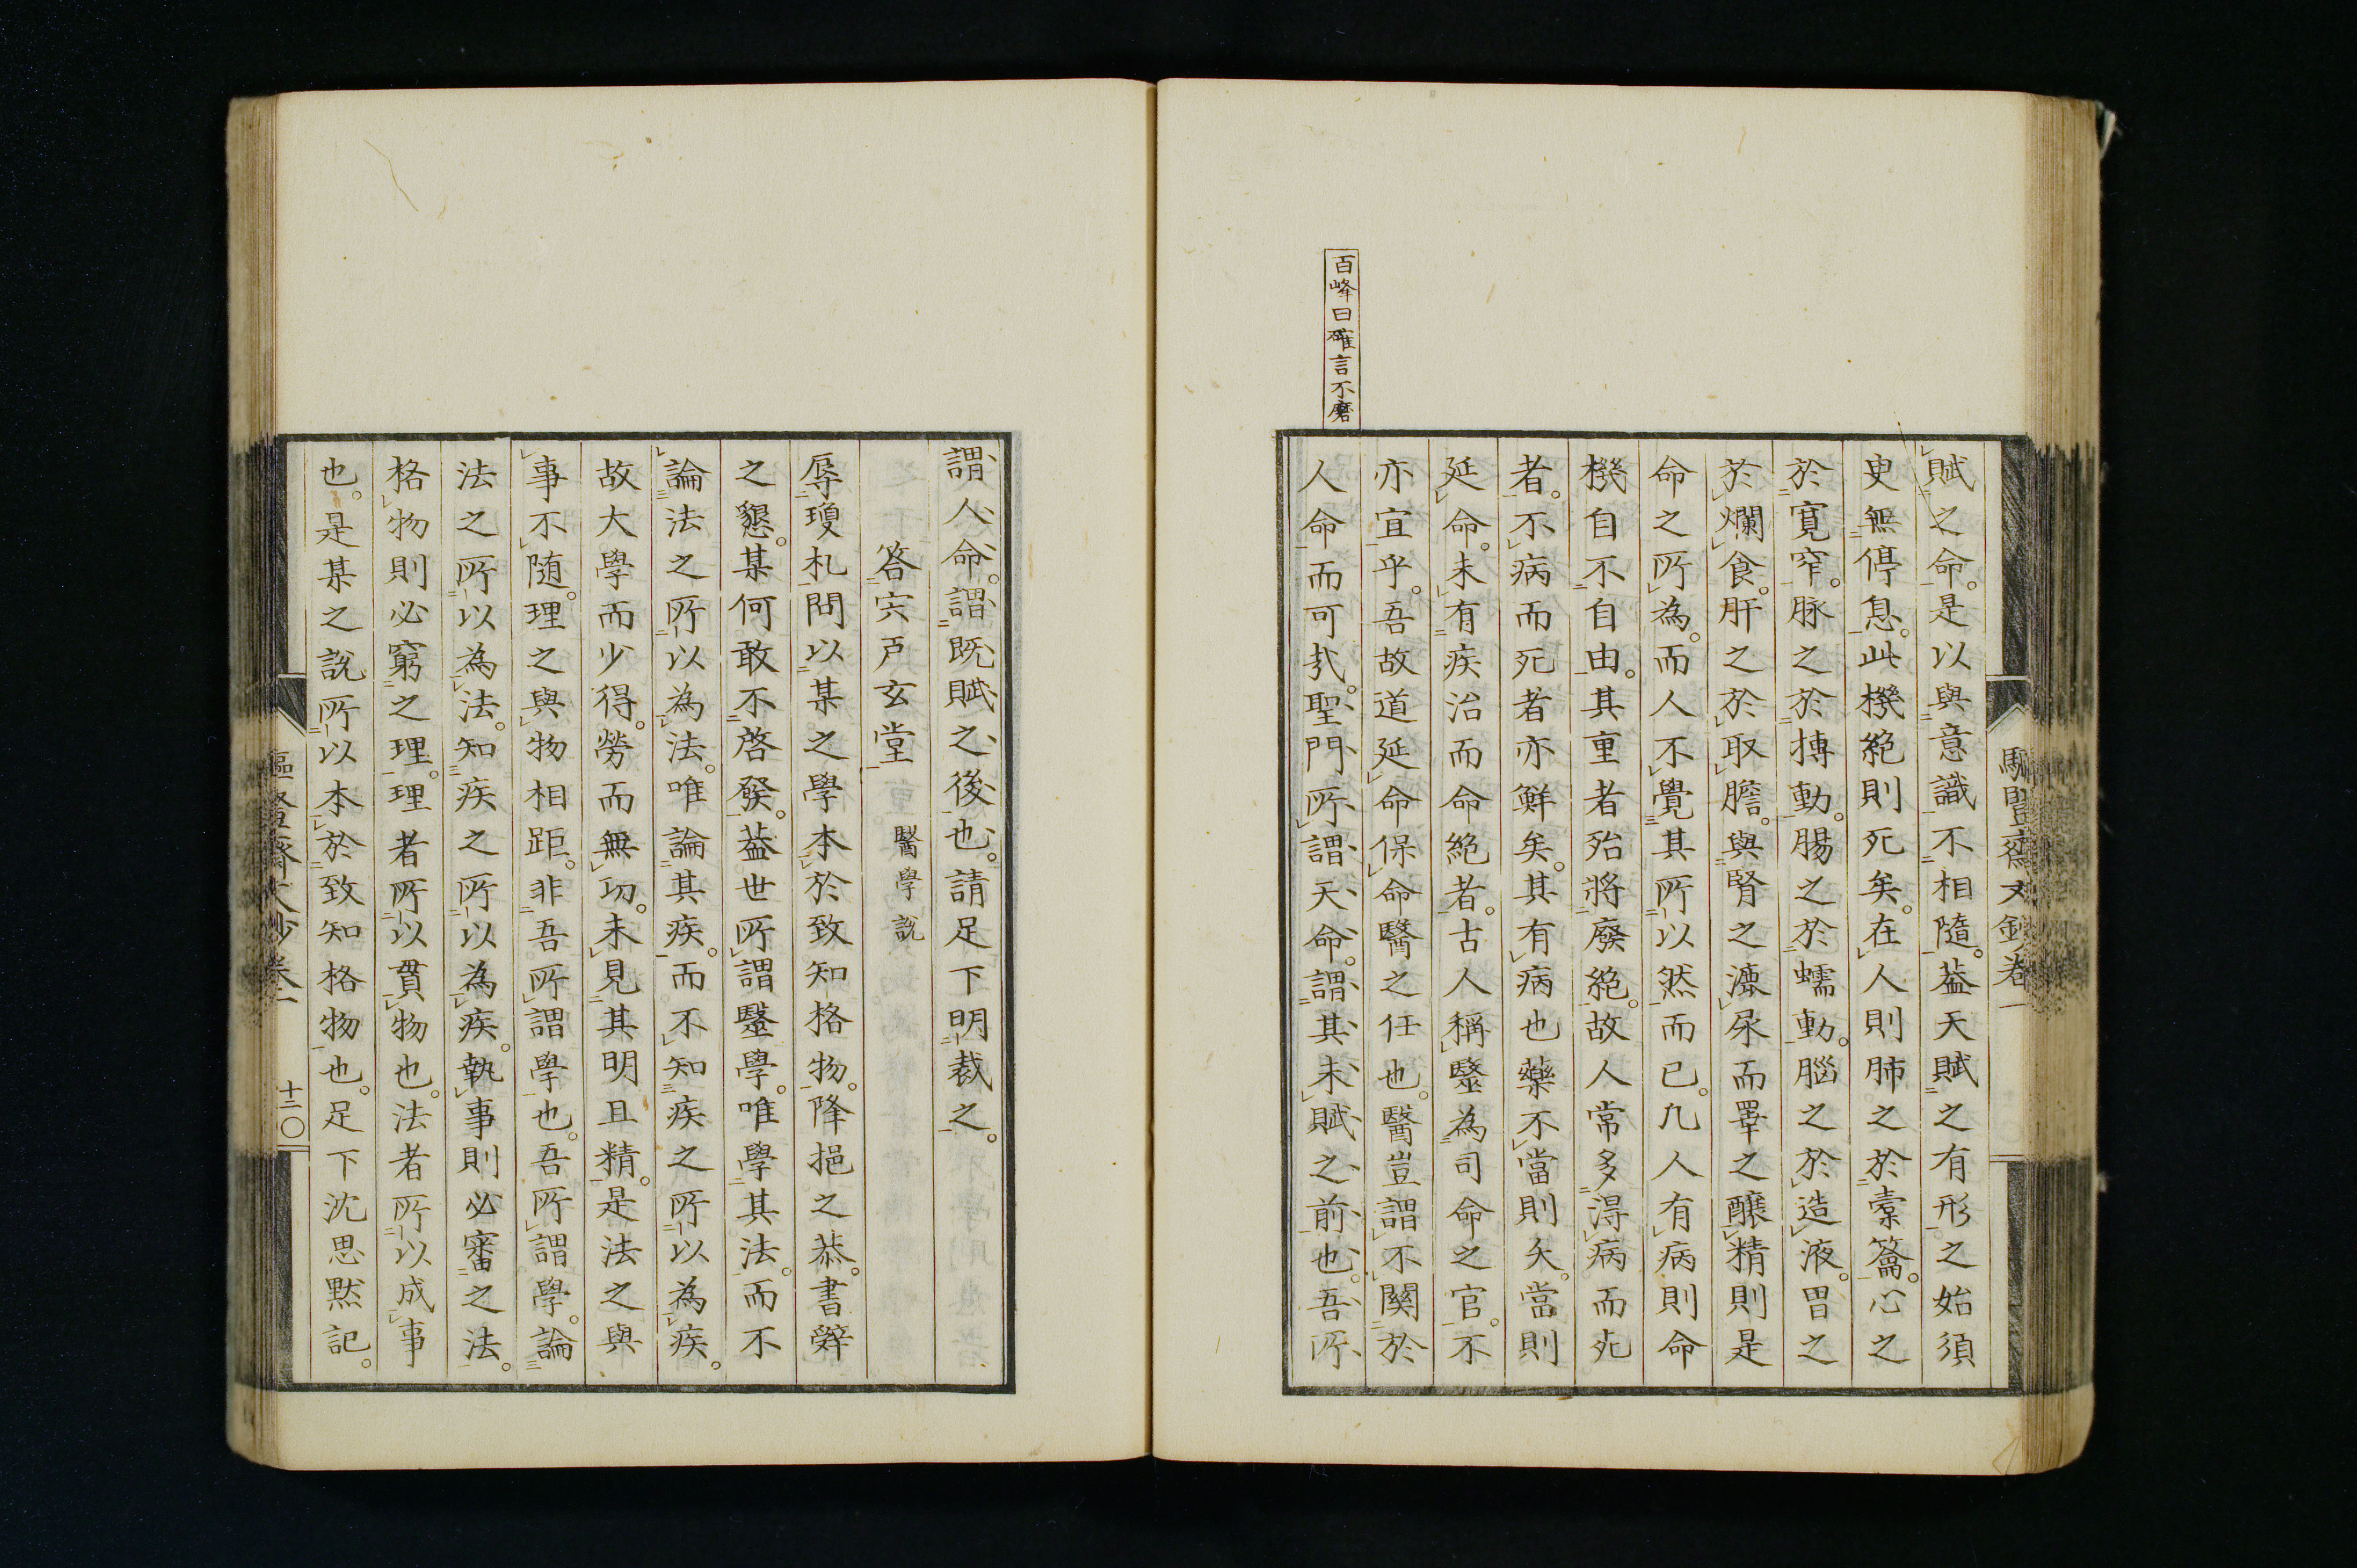 百峰曰確言不磨
賦之命。是以與意識不相隨。葢天賦之有形之始須
臾無停息。此機絶則死矣。在人則肺之於橐籥。心之
於寛窄。脉之於搏動。腸之於蠕動。腦之於造液。胃之
於爛食。肝之於取膽。與腎之漉尿而睪之釀精則是
命之所為。而人不覺其所以然而已。凢人有病則命
機自不自由。其重者殆將廢絶。故人常多得病而死
者。不病而死者亦鮮矣。其有病也藥不當則夭。當則
延命。未有疾治而命絶者。古人稱毉為司命之官。不
亦宜乎。吾故道延命保命醫之任也。醫豈謂不關於
人命而可㢤。聖門所謂天命。謂其未賦之前也。吾所
謂人命。謂既賦之後也。請足下明裁之。
答宍戸玄堂 醫學説
辱瓊札問以某之學本於致知格物。降挹之恭。書辤
之懇。某何敢不啓發。葢世所謂毉學。唯學其法。而不
論法之所以為法。唯論其疾。而不知疾之所以為疾。
故大學而少得。勞而無功。未見其明且精。是法之與
事不随。理之與物相距。非吾所謂學也。吾所謂學。論
法之所以為法。知疾之所以為疾。執事則必審之法。
格物則必窮之理。理者所以貫物也。法者所以成事
也。是某之說所以本於致知格物也。足下沈思默記。
文鈔卷一
十二〇